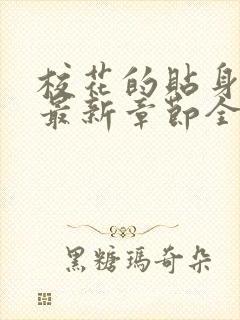 校花的贴身
最新章节全
黑糖玛奇朵